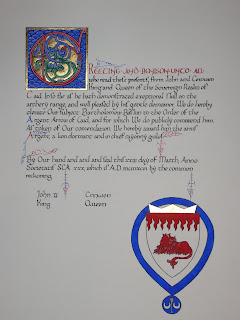 GREETING AND BENISON UNTO ALL
who read these presents, from John and Ceinwen
King and Queen of the Sovereign Realm of
Caid.
he hath demonstrated exceptional skill on the
archery range, and well pleased by his gentle demeanor, We do hereby
elevate Our subject Bartholomew to the Order of the
Argent Arrow of Caid, and for which We do publicly commend him.
As token of Our comendation We hereby award him the arms
Argent, a lion dormant and a chief gules.
By Our hand and and sed this day of March, Anno
Societatis SCA xxx, which A.D. by the common
reckoning.
John II Ceinwen
King Queen